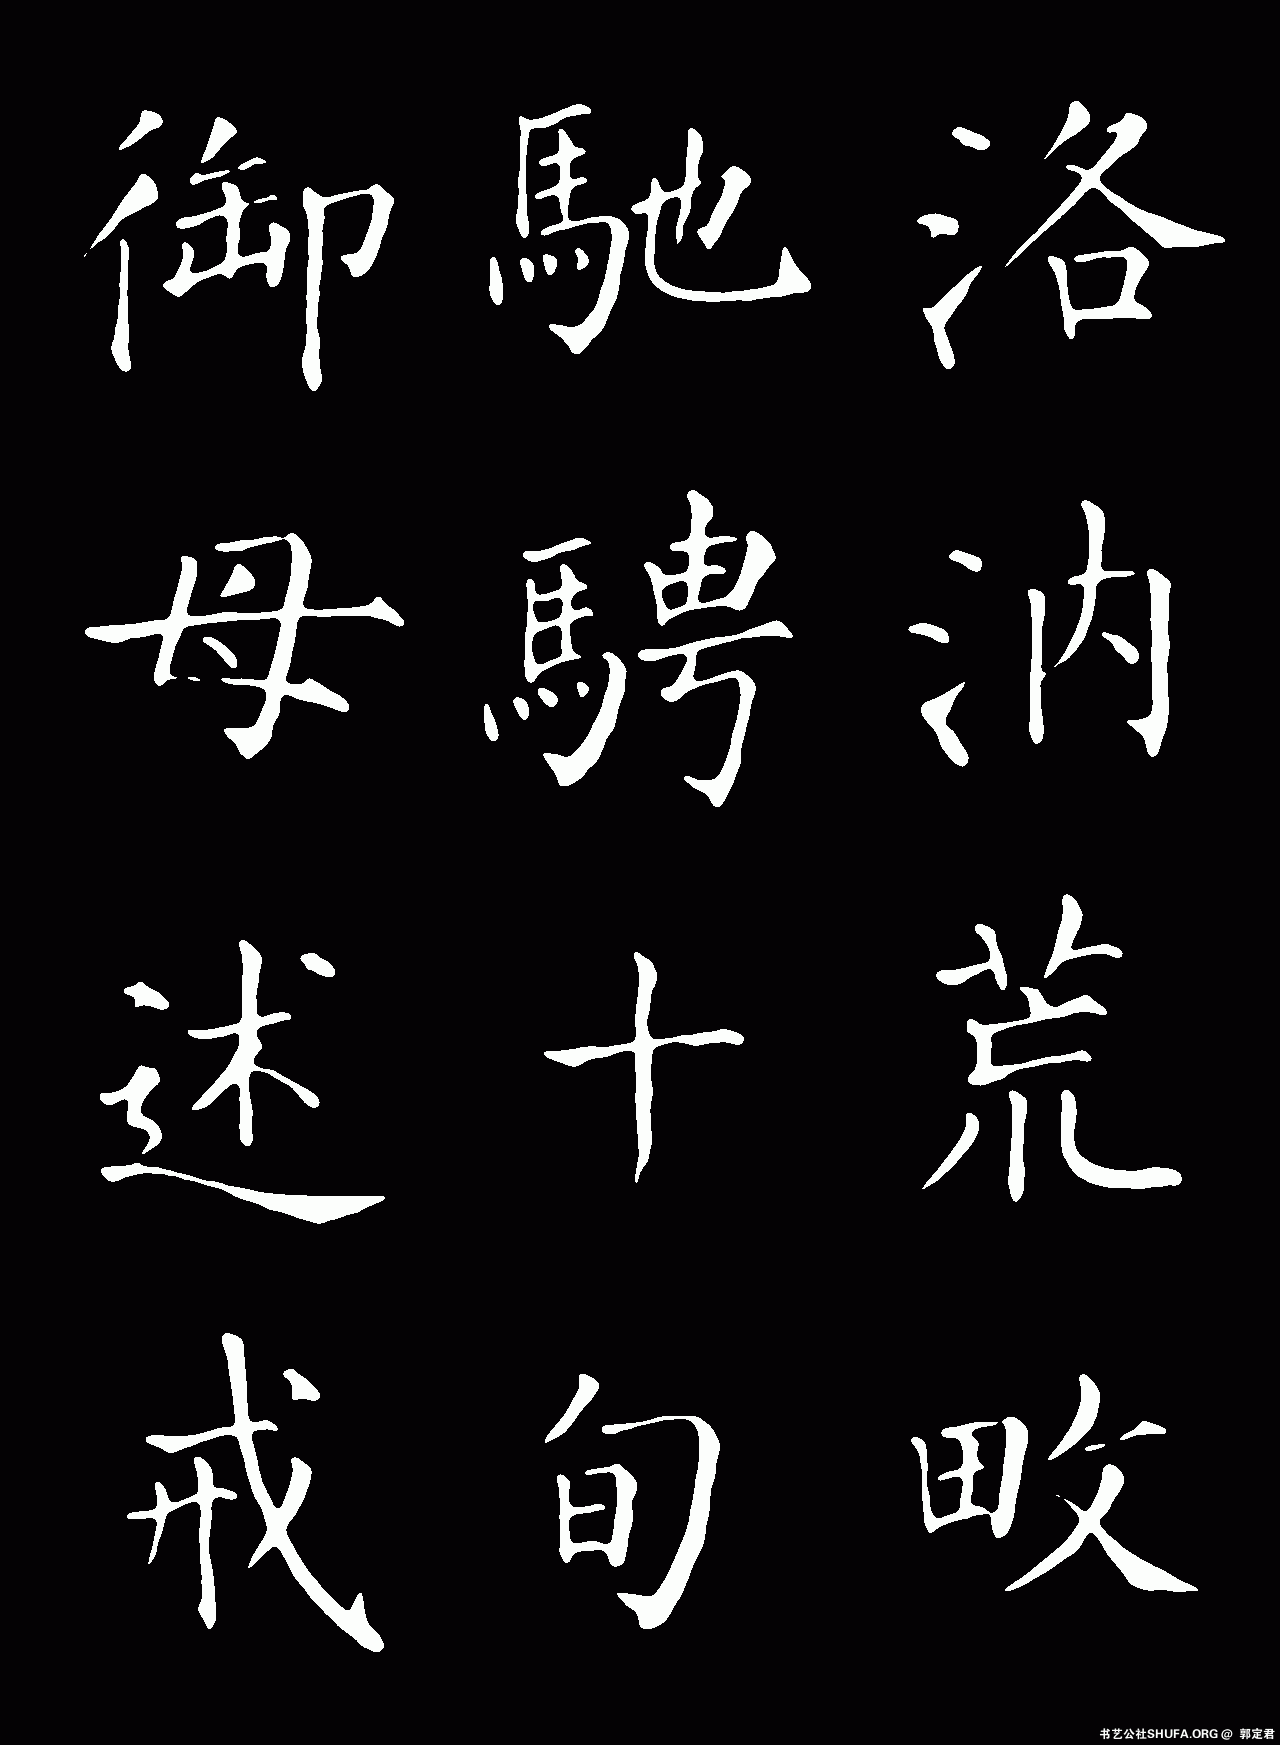 洛汭荒畋
馳騁十旬
御母述戒
书艺公社SHUFA.ORG @ 郭定君